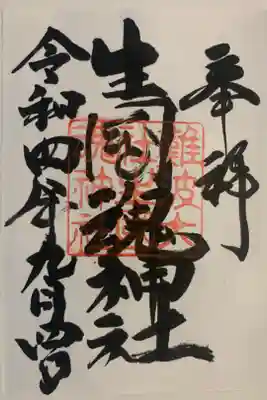 奉拝
生國魂神社
難波大社生國魂神社
令和四年九月四日